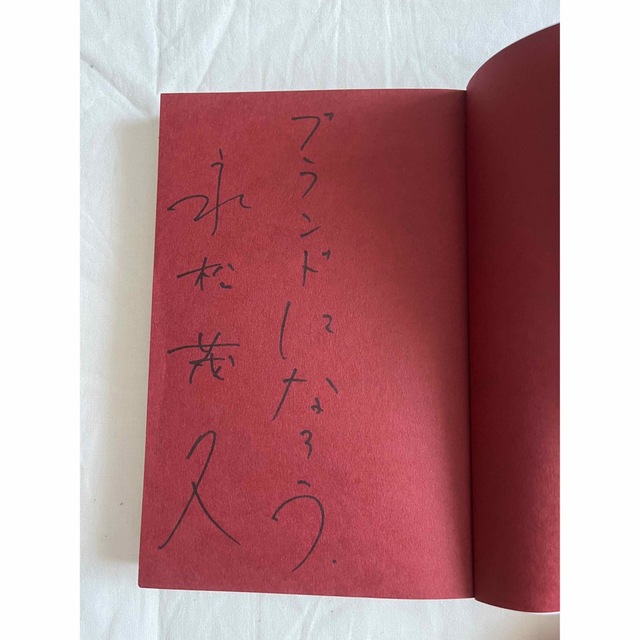 ブランドになろう.
永松茂久